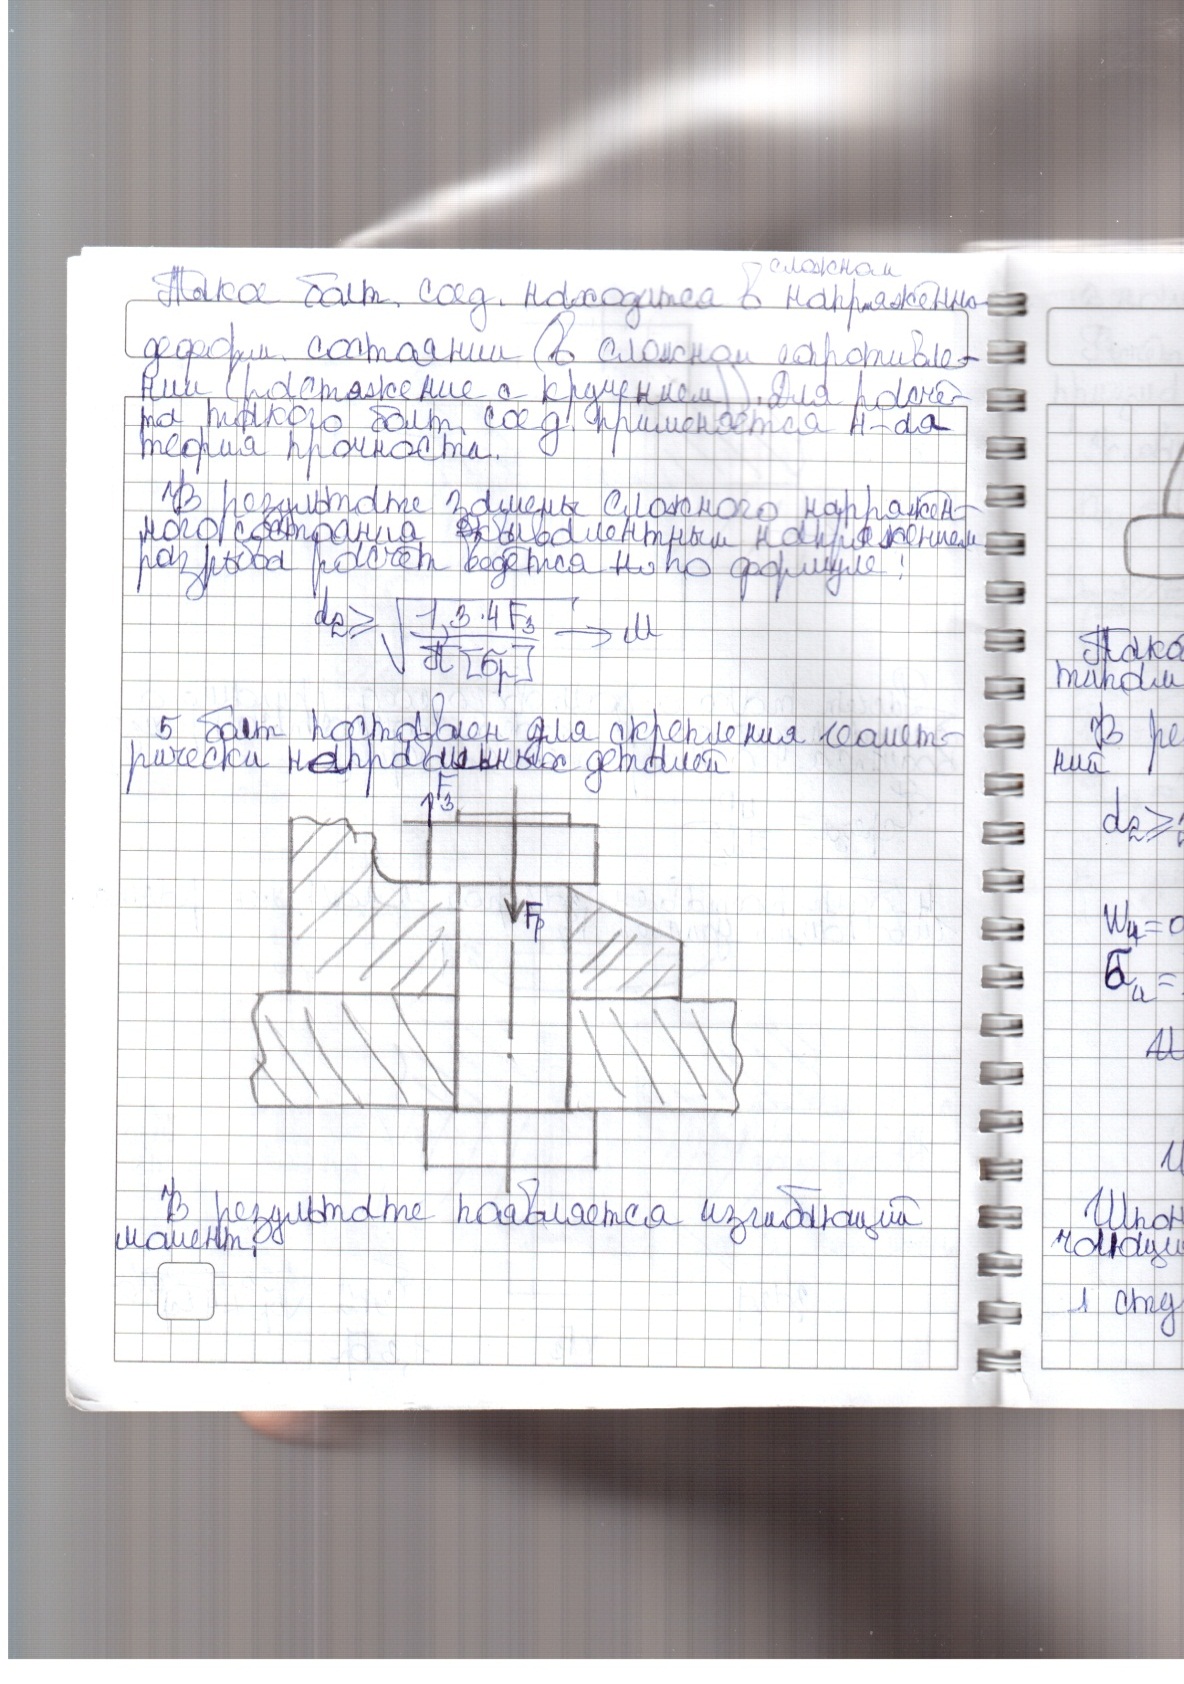 сложном
Такое болт. соед. находится в напряжённо-
деформ. состоянии (в сложном сопротивле-
нии (растяжение с кручением)). Для расчё-
та такого болт. соед. применяется н-ая
теория прочности.
В результате замены сложного напряжён-
ного состояния эквивалентным напряжением
разрыва расчёт ведётся н. по формуле:
d₂ ≥ √(1,3·4F₃ / π[σр]) → М
5 болт поставлен для скрепления геомет-
рически неправильных деталей
F₃
Fр
В результате паявляется изгибающий
момент.
Тако
типом
В ре
ний
d₂ ≥
Wи =
σи =
М
И
Шпон
1 сту